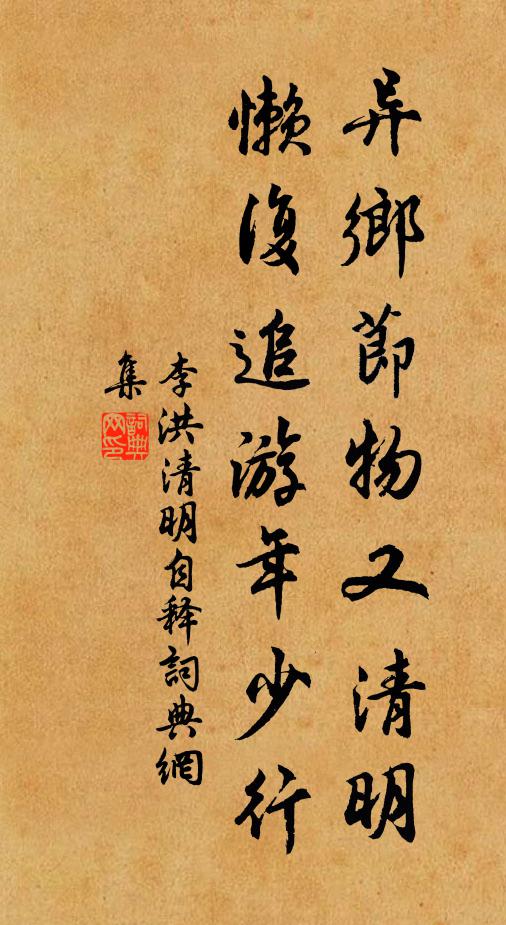 异鄉節物又清明
懶復追游年少行
李洪清明自释詞典網
集
詞典网印